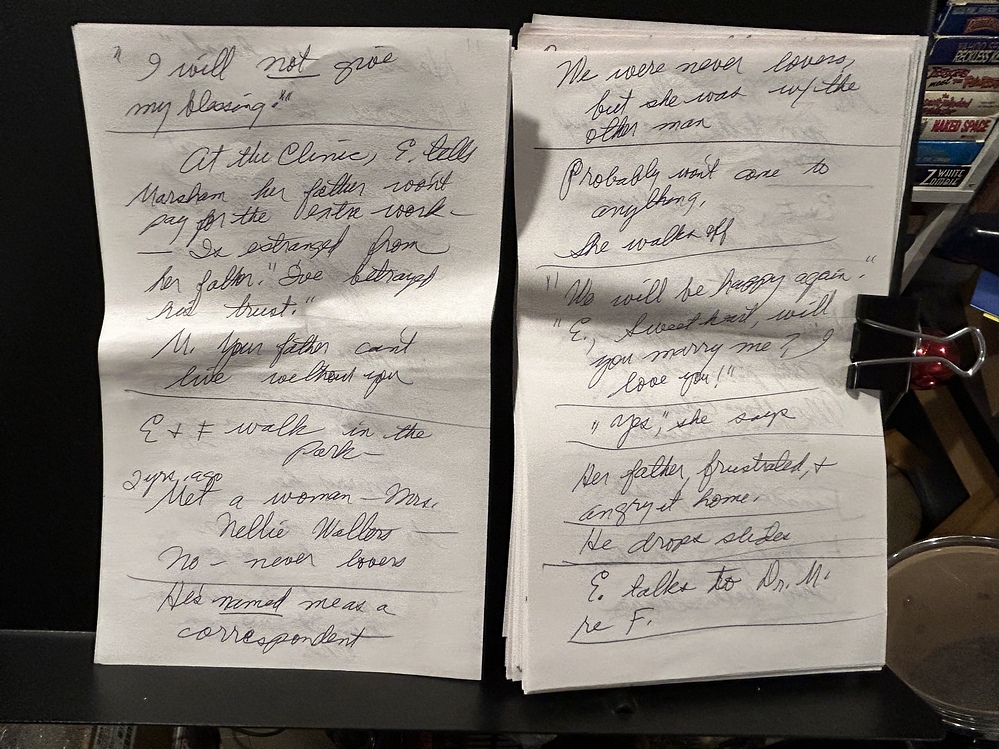 " I will not give
my blessing."
At the Clinic, E. tells
Marsham her father won't
pay for the entre work—
— Is estranged from
her father. "I've betrayed
his trust."
M. Your father can't
live without you
E + F walk in the
Park—
2 yrs. ago
Met a woman — Mrs.
Nellie Wallers —
No — never lovers
He's named me as a
correspondent
We were never lovers,
but she was w/ the
other man
Probably won't come to
anything.
She walks off
"We will be happy again."
"E., Sweethart, will
you marry me? I
love you!"
"Yes", she says
Her father, frustrated, +
angry at home.
He drops slides
E. talks to Dr. M.
re F.
RECKLESS
NAKED SPACE
WHITE
ZOMBIE